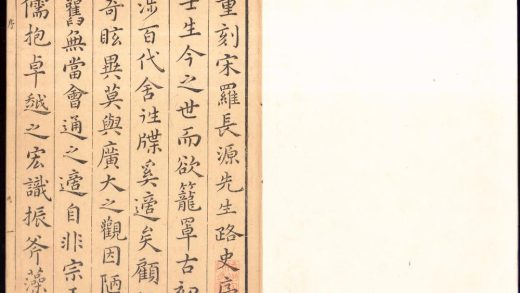 重刻宋羅長源先生路史序
士生今之世而欲籠罩古初
涉百代舍牒奚適矣顧
奇眩異莫與廣大之觀因陋
舊無當會通之適自非宗
儒抱卓越之宏識振斧藻
序